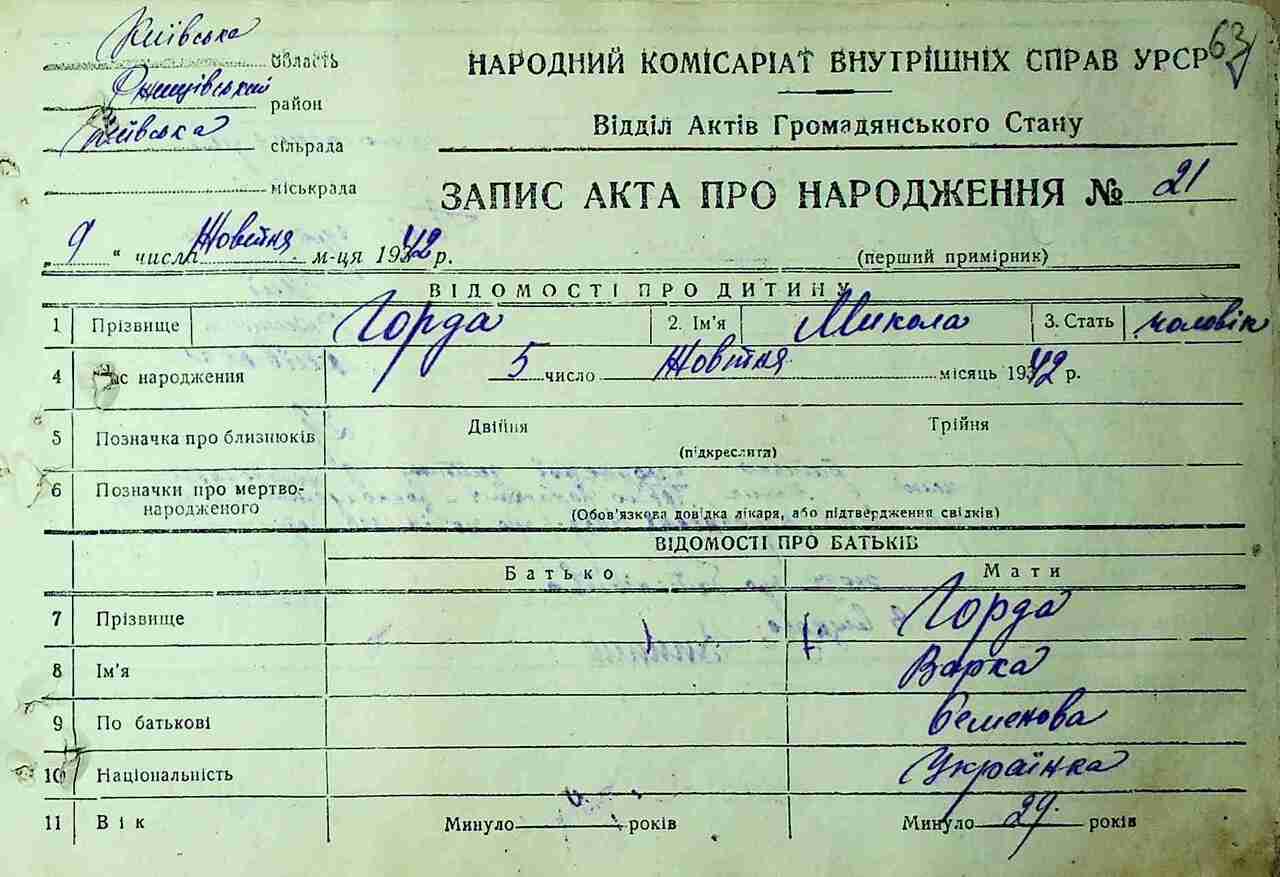 63
Київська область
Ржищівський район
сільрада
міськрада
НАРОДНИЙ КОМІСАРІАТ ВНУТРІШНІХ СПРАВ УРСР
Відділ Актів Громадянського Стану
ЗАПИС АКТА ПРО НАРОДЖЕННЯ № 21
„ 9 “ числа Жовтня м-ця 1942 р.
(перший примірник)
ВІДОМОСТІ ПРО ДИТИНУ
1 Прізвище Горда 2. Ім'я Микола 3. Стать чоловік
4 Час народження 5 число Жовтня місяць 1942 р.
5 Позначка про близнюків Двійня Трійня
(підкреслити)
6 Позначки про мертво-
народженого (Обов'язкова довідка лікаря, або підтвердження свідків)
ВІДОМОСТІ ПРО БАТЬКІВ
Батько Мати
7 Прізвище Горда
8 Ім'я Варка
9 По батькові Семенова
10 Національність Українка
11 Вік Минуло років Минуло 29 років